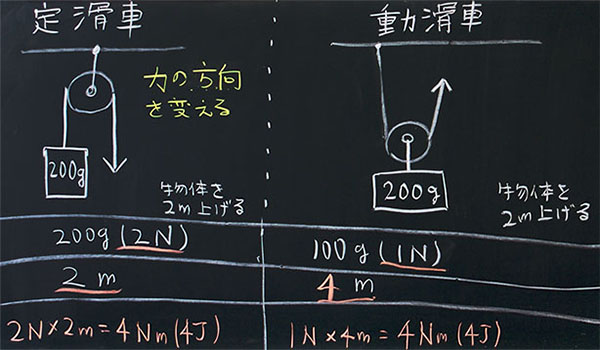 定滑車
力の方向
を変える
200g
物体を
2m上げる
200g(2N)
2m
2N×2m=4Nm(4J)
動滑車
200g
物体を
2m上げる
100g(1N)
4m
1N×4m=4Nm(4J)